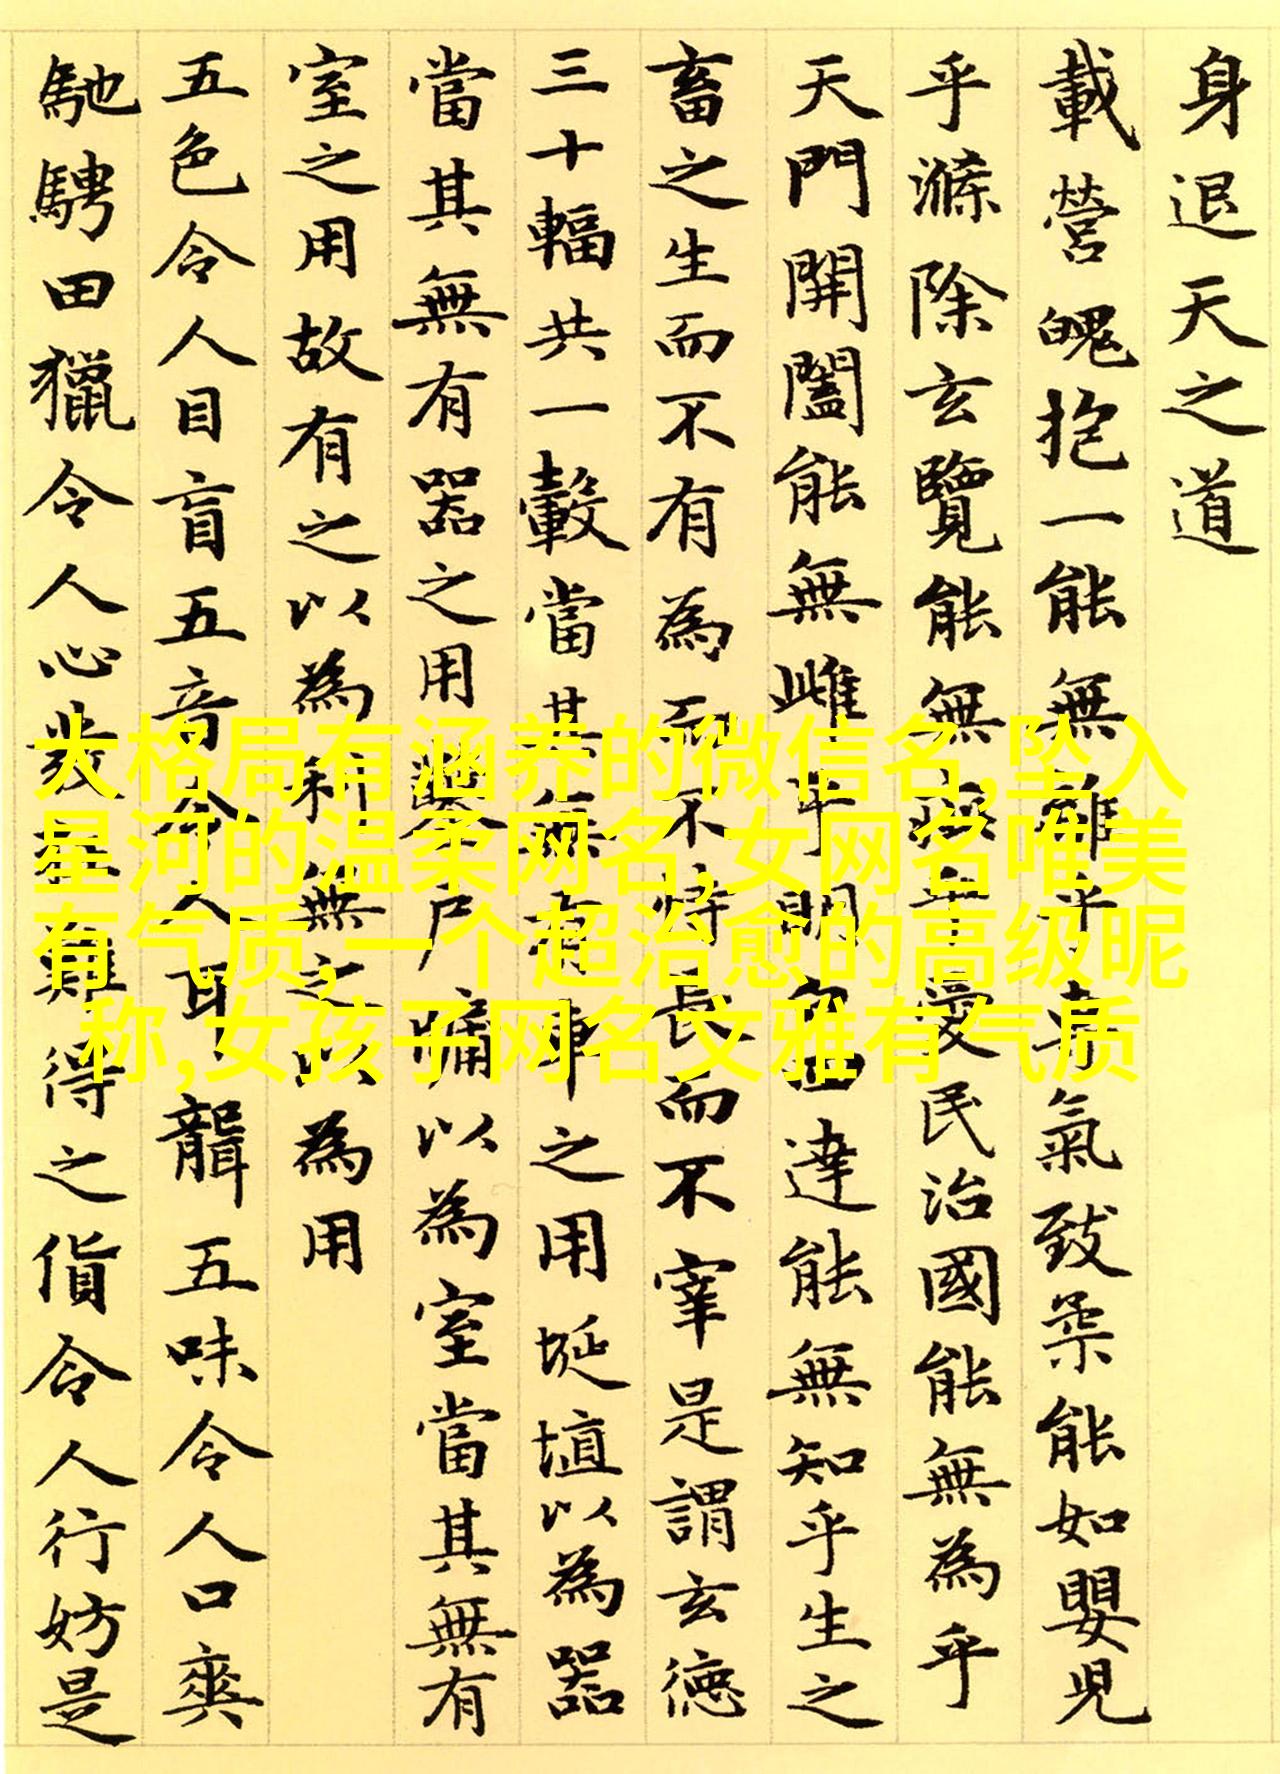 身退天之道
載營魄抱一能無離乎專氣致柔能如嬰兒
乎滌除玄覽能無疵乎愛民治國能無為乎
天門開闔能無雌乎明白四達能無知乎生之
畜之生而不有為而不恃長而不宰是謂玄德
三十輻共一轂當其無有車之用埏埴以為器
當其無有器之用鑿戶牖以為室當其無有
室之用故有之以為利無之以為用
五色令人目盲五音令人耳聾五味令人口爽
馳騁田獵令人心發狂難得之貨令人行妨是
大格局有涵养的微信名,坠入
星河的温柔网名,女网名唯美
有气质,一个超治愈的高级昵
称,女孩子网名文雅有气质